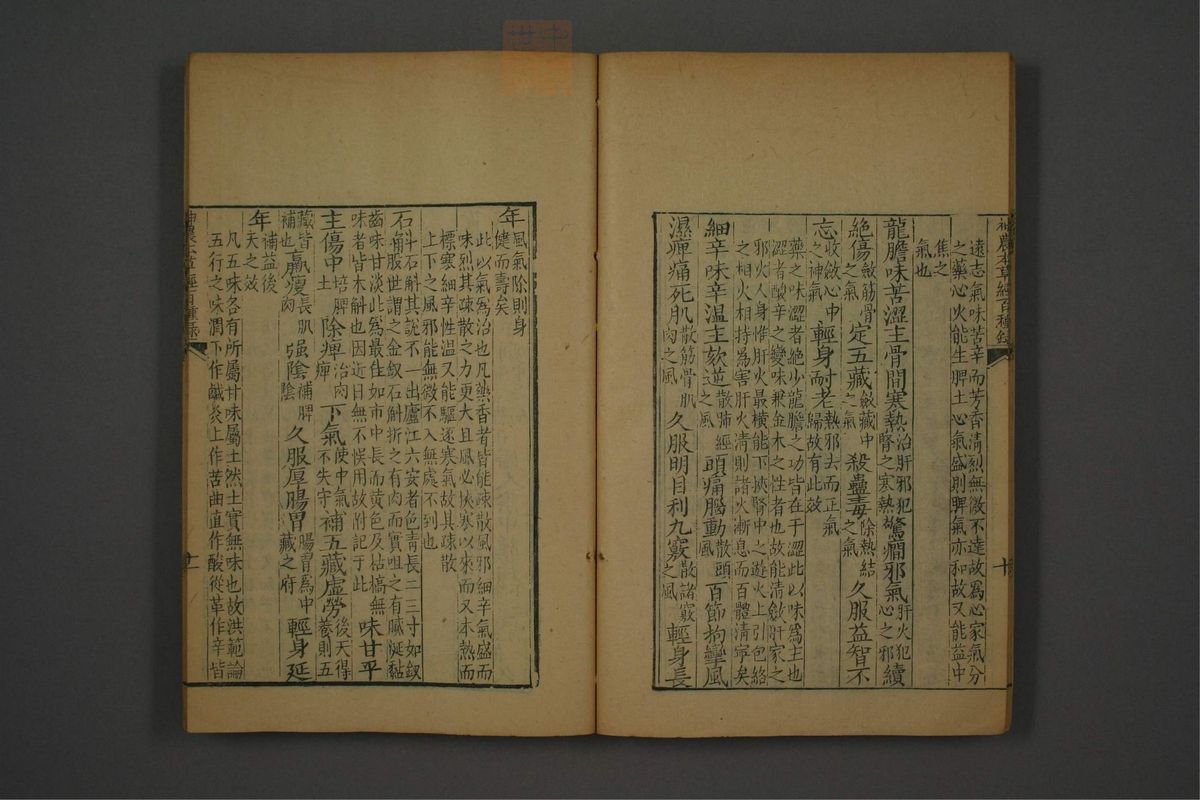 神農本草經百種錄
十
遠志氣味苦辛而芳香清烈無微不達故爲心家氣分
之藥心火能生脾土心氣盛則脾氣亦和故又能益中
焦之
氣也
龍膽味苦澀主骨間寒熱治肝邪犯腎之寒熱驚癇邪氣肝火犯心之邪續
絕傷斂筋骨之氣定五藏斂藏中之氣殺蠱毒除熱結之氣久服益智不
忘收斂心中之神氣輕身耐老熱邪去而正氣歸故有此效
藥之味澀者絕少龍膽之功皆在于澀此以味爲主也
澀者酸辛之變味兼金木之性者也故能清斂肝家之
邪火人身惟肝火最橫能下挾腎中之遊火上引包絡
之相火相持爲害肝火清則諸火漸息而百體清寧矣
細辛味辛温主欬逆散肺經之風頭痛腦動散頭風百節拘攣風
濕痺痛死肌散筋骨肌肉之風久服明目利九竅散諸竅之風輕身長
年風氣除則身健而壽矣
此以氣爲治也凡藥香者皆能疎散風邪細辛氣盛而
味烈其疎散之力更大且風必挾寒以來而又本熱而
標寒細辛性温又能驅逐寒氣故其疎散
上下之風邪能無微不入無處不到也
石斛石斛其說不一出廬江六安者色青長二三寸如釵
股世謂之金釵石斛折之有肉而實咀之有膩涎黏
齒味甘淡此爲最佳如市中長而黄色及枯槁無
味者皆木斛也因近日無不悮用故附記于此味甘平
主傷中培脾土除痺治肉痺下氣使中氣不失守補五藏虛勞後天得養則五
藏皆補也羸瘦長肌肉强陰補脾陰久服厚腸胃腸胃爲中藏之府輕身延
年補益後天之效
凡五味各有所屬甘味屬土然土實無味也故洪範論
五行之味潤下作鹹炎上作苦曲直作酸從革作辛皆